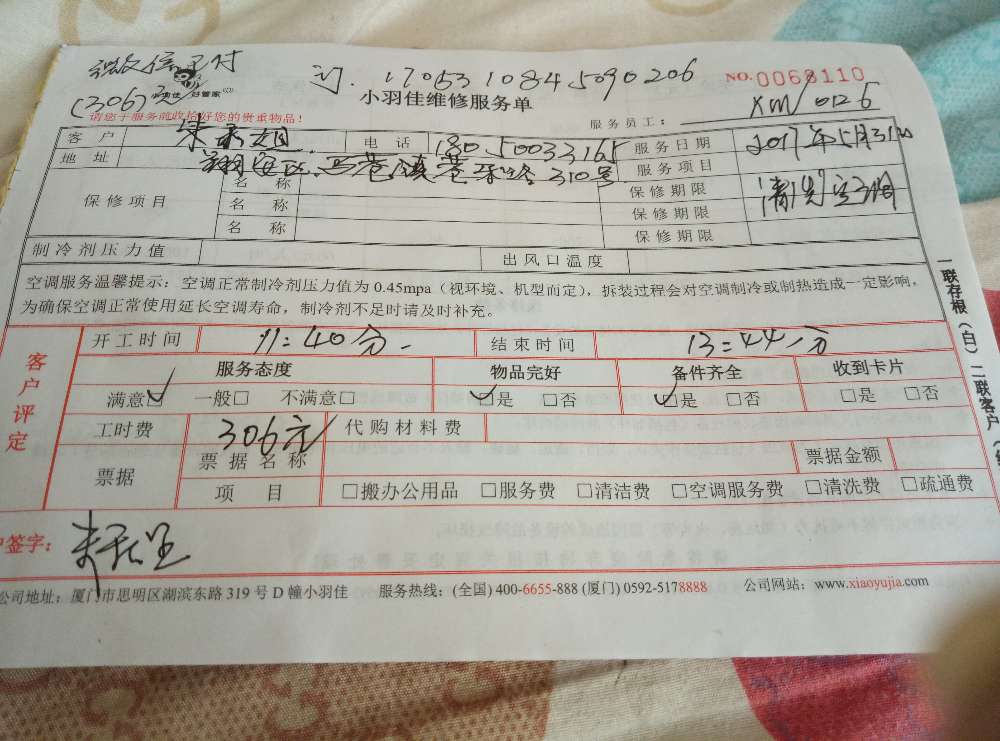 微信已付
(306)元
小羽佳 好管家
订. 1705310845090206
NO.0068110
小羽佳维修服务单
请您于服务前收拾好您的贵重物品!
服务员工: XM/0126
客 户 电 话 180.50033165 服务日期 2017年5月31日
地 址 翔安区.马巷镇巷 路310号 服务项目 清洗空调
保修项目 名 称 保修期限
名 称 保修期限
名 称 保修期限
制冷剂压力值 出风口温度
空调服务温馨提示:空调正常制冷剂压力值为 0.45mpa(视环境、机型而定),拆装过程会对空调制冷或制热造成一定影响,
为确保空调正常使用延长空调寿命,制冷剂不足时请及时补充。
客户评定
开工时间 11:40分. 结束时间 13:44分
服务态度 物品完好 备件齐全 收到卡片
满意□ 一般□ 不满意□ □是 □否 □是 □否 □是 □否
工时费 306元 代购材料费
票据 票据名称 票据金额
项 目 □搬办公用品 □服务费 □清洁费 □空调服务费 □清洗费 □疏通费
户签字:
公司地址:厦门市思明区湖滨东路 319 号 D 幢小羽佳 服务热线:(全国) 400-6655-888 (厦门) 0592-5178888 公司网站:www.xiaoyujia.com
一联存根(白)二联客户(